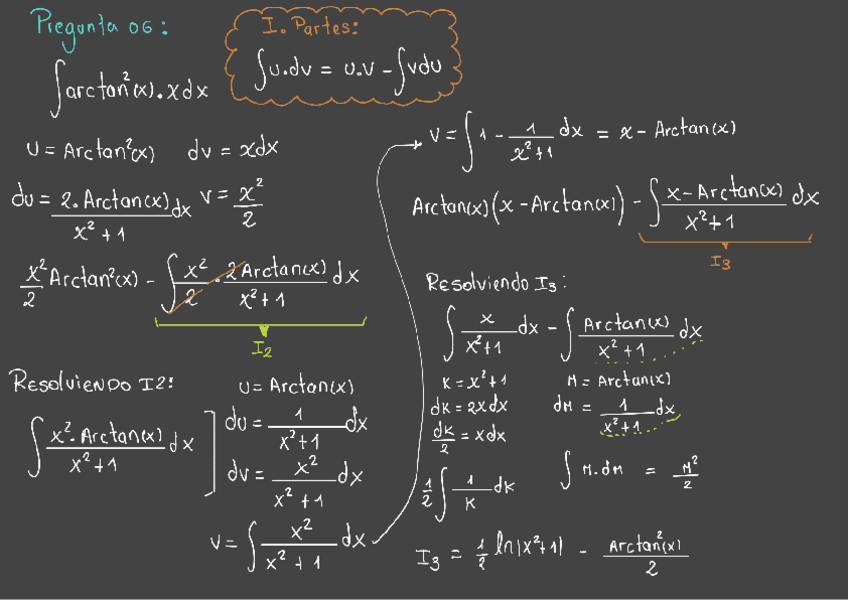 Pregunta 06:
∫ arctan²(x).x dx
I. Partes:
∫ u.dv = u.v - ∫ v du
U = Arctan²(x) dv = x dx
du = 2.Arctan(x)/(x² + 1) dx v = x²/2
x²/2 Arctan²(x) - ∫ x²/2 . 2Arctan(x)/(x² + 1) dx
I2
Resolviendo I2:
∫ x².Arctan(x)/(x² + 1) dx
u = Arctan(x)
du = 1/(x² + 1) dx
dv = x²/(x² + 1) dx
v = ∫ x²/(x² + 1) dx
v = ∫ 1 - 1/(x² + 1) dx = x - Arctan(x)
Arctan(x)(x - Arctan(x)) - ∫ x - Arctan(x)/(x² + 1) dx
I3
Resolviendo I3:
∫ x/(x² + 1) dx - ∫ Arctan(x)/(x² + 1) dx
K = x² + 1 M = Arctan(x)
dK = 2x dx dM = 1/(x² + 1) dx
dK/2 = x dx
1/2 ∫ 1/K dK ∫ M.dM = M²/2
I3 = 1/2 ln|x² + 1| - Arctan²(x)/2